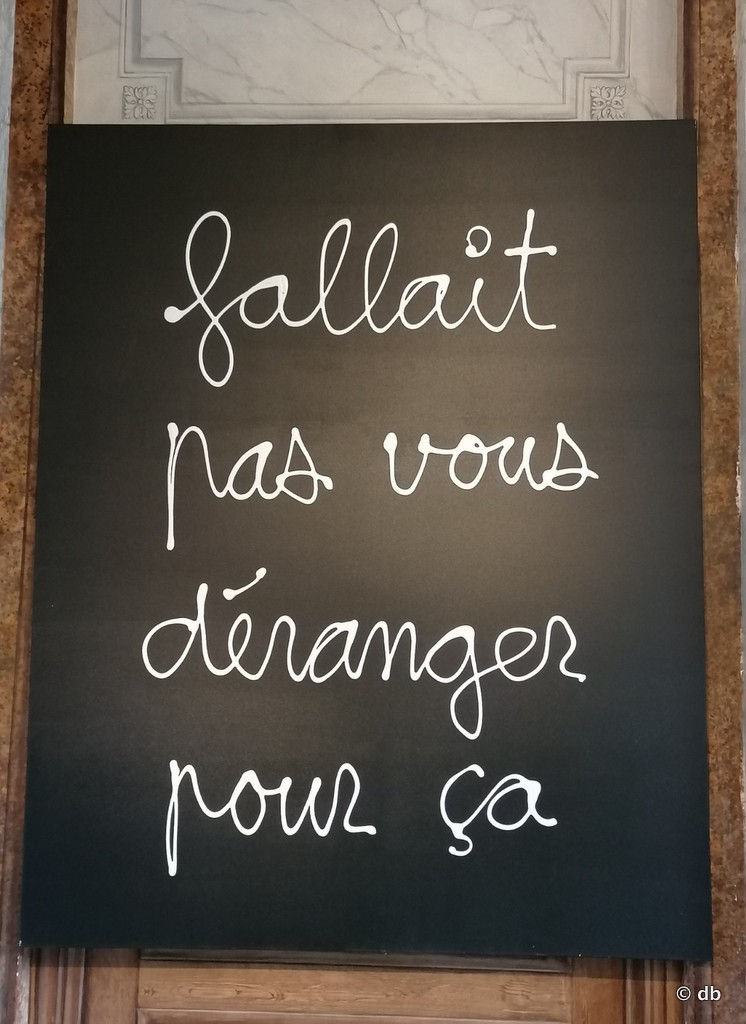 fallait
pas vous
déranger
pour ça
© db